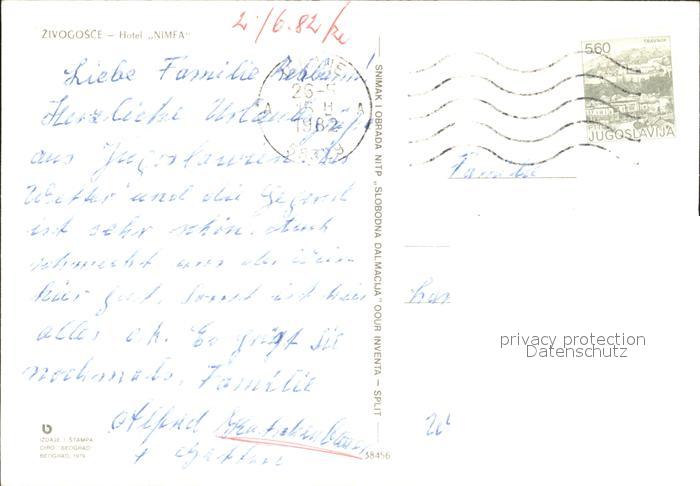 2./6.82/
ŽIVOGOŠČE – Hotel „NIMFA"
Liebe Familie
Herzliche Urlaubsgrüße
aus Jugoslawien. Das
Wetter und die Gegend
ist sehr schön. Auch
schmeckt uns der Wein
hier gut. Sonst ist hier
alles o.k. Es grüßt Sie
nochmals, Familie
Alfred
+ Gattin
26-5
15 H
1982
A A
SNIMAK I OBRADA NITP „SLOBODNA DALMACIJA" OOUR INVENTA – SPLIT
38456
IZDAJE I ŠTAMPA
BEOGRAD, 1979
5.60
JUGOSLAVIJA
Familie
privacy protection
Datenschutz